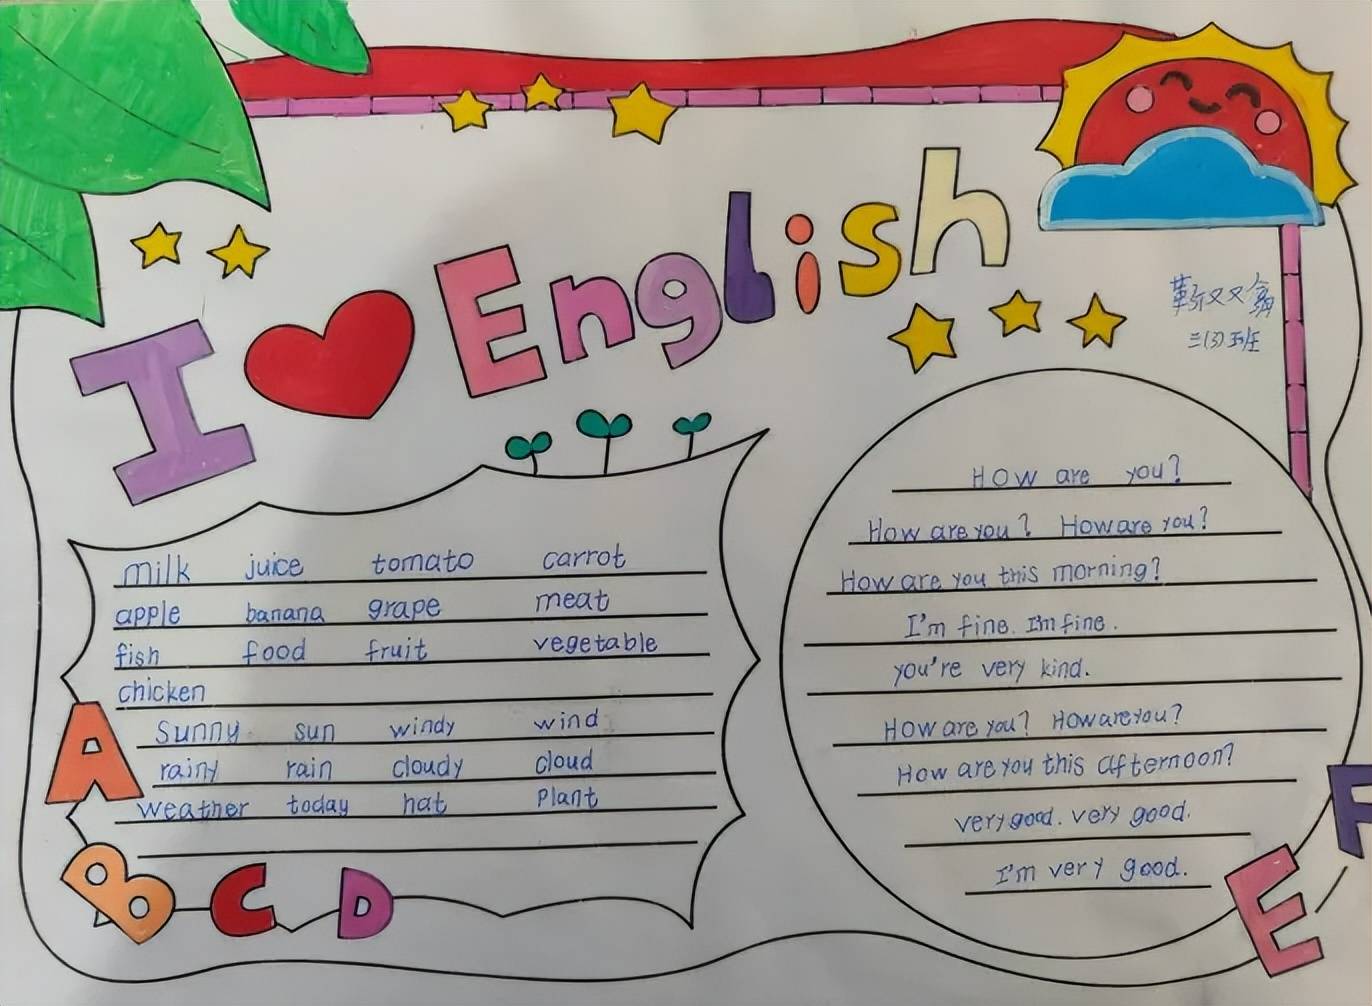 I English
靳又又
三(3)班
milk juice tomato carrot
apple banana grape meat
fish food fruit vegetable
chicken
sunny sun windy wind
rainy rain cloudy cloud
weather today hat Plant
How are you?
How are you? How are you?
How are you this morning?
I'm fine. I'm fine.
you're very kind.
How are you? How are you?
How are you this afternoon?
very good. very good.
I'm very good.
A
B C D
E
F